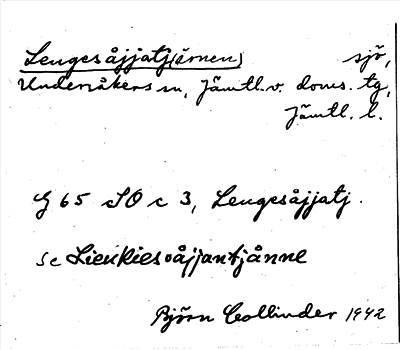 Leugesåjjatj(ärnen) sjö,
Undersåkers sn, Jämtl. v. doms. tg,
Jämtl. l.
G 65 SO c 3, Leugesåjjatj.
se Lieukiesåjjantjånne
Björn Collinder 1942